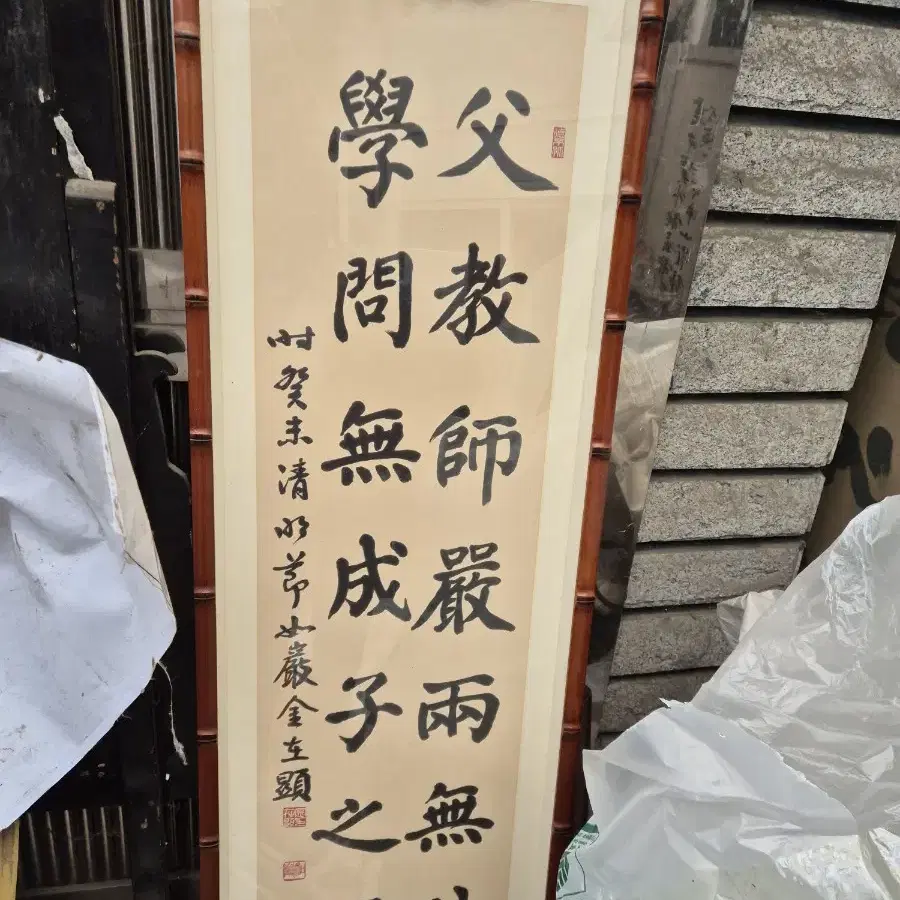 父教師嚴兩無
學問無成子之
時癸未清明節如巖金在顯